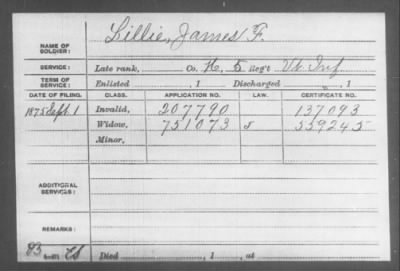 NAME OF SOLDIER: Lillie, James F.
SERVICE: Late rank, Co. H, 5 Reg't Vt. Inf
TERM OF SERVICE: Enlisted , 1 Discharged , 1
DATE OF FILING. CLASS. APPLICATION NO. LAW. CERTIFICATE NO.
1875 Sept. 1 Invalid, 207790 137093
Widow, 751073 559245
Minor,
ADDITIONAL SERVICES:
REMARKS:
Died , 1 , at